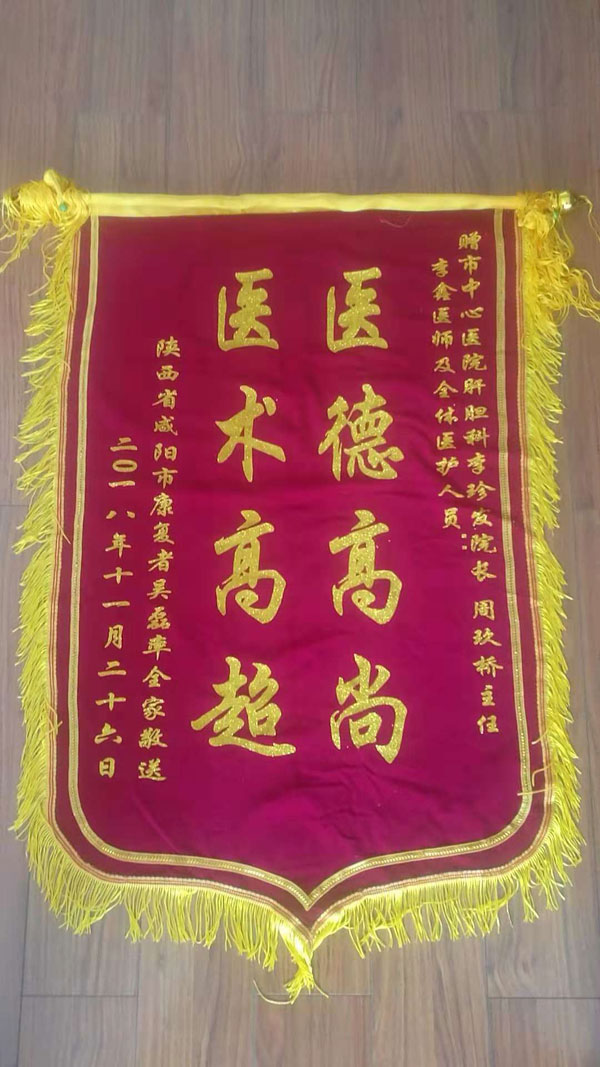 赠市中心医院肝胆科李珍发院长 周玖桥主任
李鑫医师及全体医护人员：
医德高尚
医术高超
陕西省咸阳市康复者吴磊率全家敬送
二〇一八年十一月二十六日